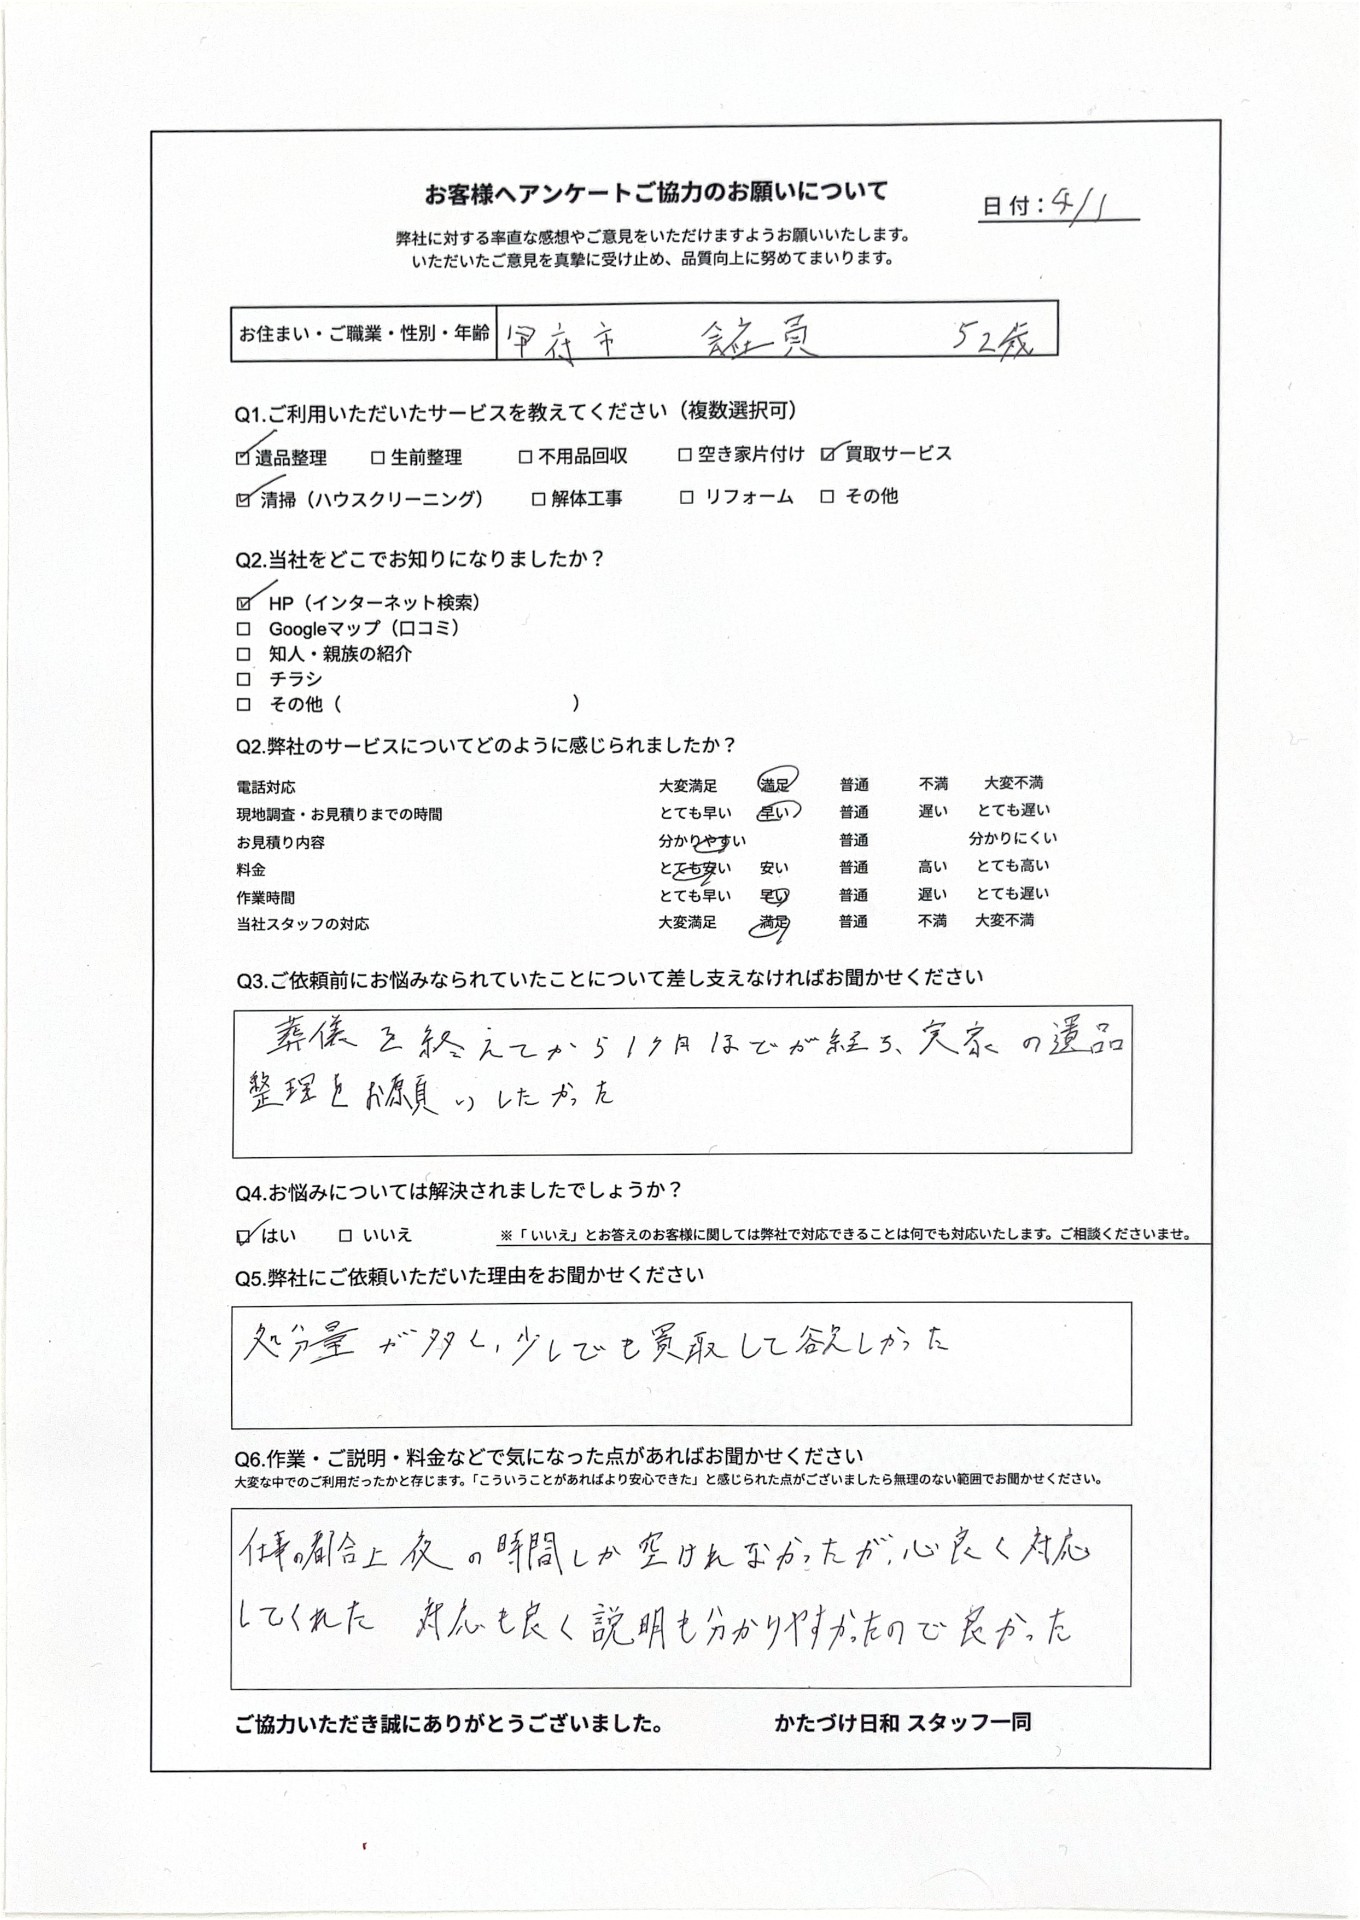 お客様へアンケートご協力のお願いについて
日付：4/1
弊社に対する率直な感想やご意見をいただけますようお願いいたします。
いただいたご意見を真摯に受け止め、品質向上に努めてまいります。
お住まい・ご職業・性別・年齢 甲府市 会社員 52歳
Q1.ご利用いただいたサービスを教えてください（複数選択可）
☑遺品整理 □生前整理 □不用品回収 □空き家片付け ☑買取サービス
☑清掃（ハウスクリーニング） □解体工事 □リフォーム □その他
Q2.当社をどこでお知りになりましたか？
☑ HP（インターネット検索）
□ Googleマップ（口コミ）
□ 知人・親族の紹介
□ チラシ
□ その他（ ）
Q2.弊社のサービスについてどのように感じられましたか？
電話対応 大変満足 満足 普通 不満 大変不満
現地調査・お見積りまでの時間 とても早い 早い 普通 遅い とても遅い
お見積り内容 分かりやすい 普通 分かりにくい
料金 とても安い 安い 普通 高い とても高い
作業時間 とても早い 早い 普通 遅い とても遅い
当社スタッフの対応 大変満足 満足 普通 不満 大変不満
Q3.ご依頼前にお悩みなられていたことについて差し支えなければお聞かせください
葬儀を終えてから1ヶ月ほどが経ち、実家の遺品
整理をお願いしたかった
Q4.お悩みについては解決されましたでしょうか？
☑はい □いいえ ※「いいえ」とお答えのお客様に関しては弊社で対応できることは何でも対応いたします。ご相談くださいませ。
Q5.弊社にご依頼いただいた理由をお聞かせください
処分量が多く、少しでも買取して欲しかった
Q6.作業・ご説明・料金などで気になった点があればお聞かせください
大変な中でのご利用だったかと存じます。「こういうことがあればより安心できた」と感じられた点がございましたら無理のない範囲でお聞かせください。
仕事の都合上夜の時間しか空けれなかったが、心良く対応
してくれた 対応も良く説明も分かりやすかったので良かった
ご協力いただき誠にありがとうございました。 かたづけ日和 スタッフ一同